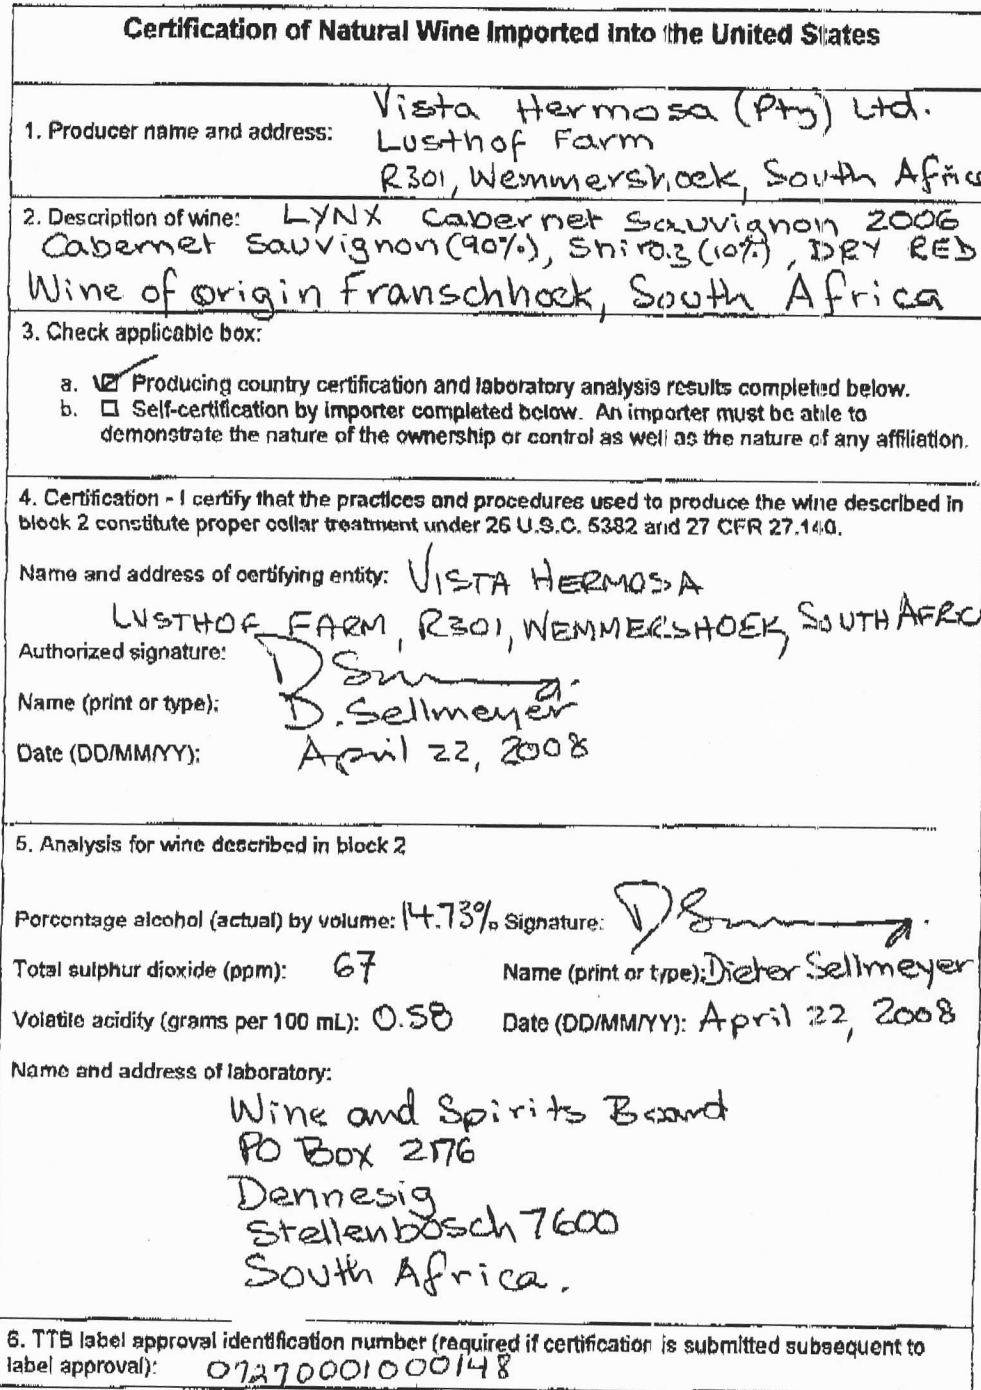 Certification of Natural Wine Imported Into the United States
1. Producer name and address: Vista Hermosa (Pty) Ltd.
Lusthof Farm
R301, Wemmershoek, South Africa
2. Description of wine: LYNX Cabernet Sauvignon 2006
Cabernet Sauvignon (90%), Shiraz (10%), DRY RED
Wine of origin Franschhoek, South Africa
3. Check applicable box:
a. ☑ Producing country certification and laboratory analysis results completed below.
b. ☐ Self-certification by importer completed below. An importer must be able to
demonstrate the nature of the ownership or control as well as the nature of any affiliation.
4. Certification - I certify that the practices and procedures used to produce the wine described in
block 2 constitute proper cellar treatment under 26 U.S.C. 5382 and 27 CFR 27.140.
Name and address of certifying entity: VISTA HERMOSA
LUSTHOF FARM, R301, WEMMERSHOEK, SOUTH AFRC
Authorized signature:
Name (print or type): D. Sellmeyer
Date (DD/MM/YY): April 22, 2008
5. Analysis for wine described in block 2
Percentage alcohol (actual) by volume: 14.73% Signature:
Total sulphur dioxide (ppm): 67 Name (print or type): Dieter Sellmeyer
Volatile acidity (grams per 100 mL): 0.58 Date (DD/MM/YY): April 22, 2008
Name and address of laboratory:
Wine and Spirits Board
PO Box 2176
Dennesig
Stellenbosch 7600
South Africa.
6. TTB label approval identification number (required if certification is submitted subsequent to
label approval): 07270001000148